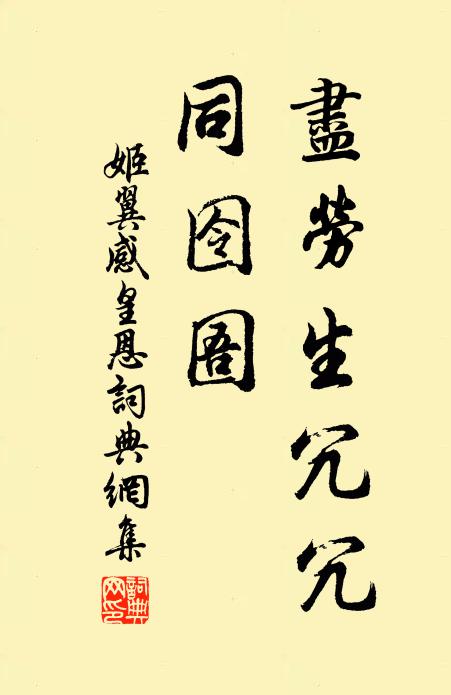 盡勞生冗冗
同囹圄
姬翼感皇恩詞典網集
詞典網印